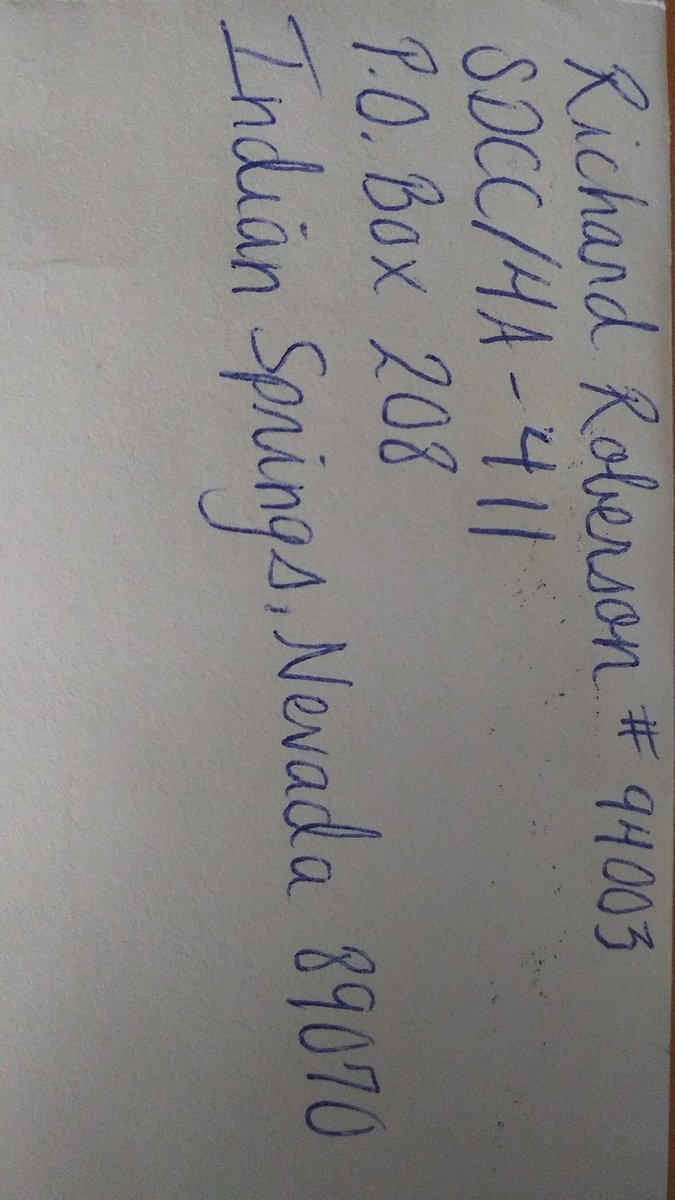 Richard Roberson # 94003
SDCC/HA-411
P.O. Box 208
Indian Springs, Nevada 89070